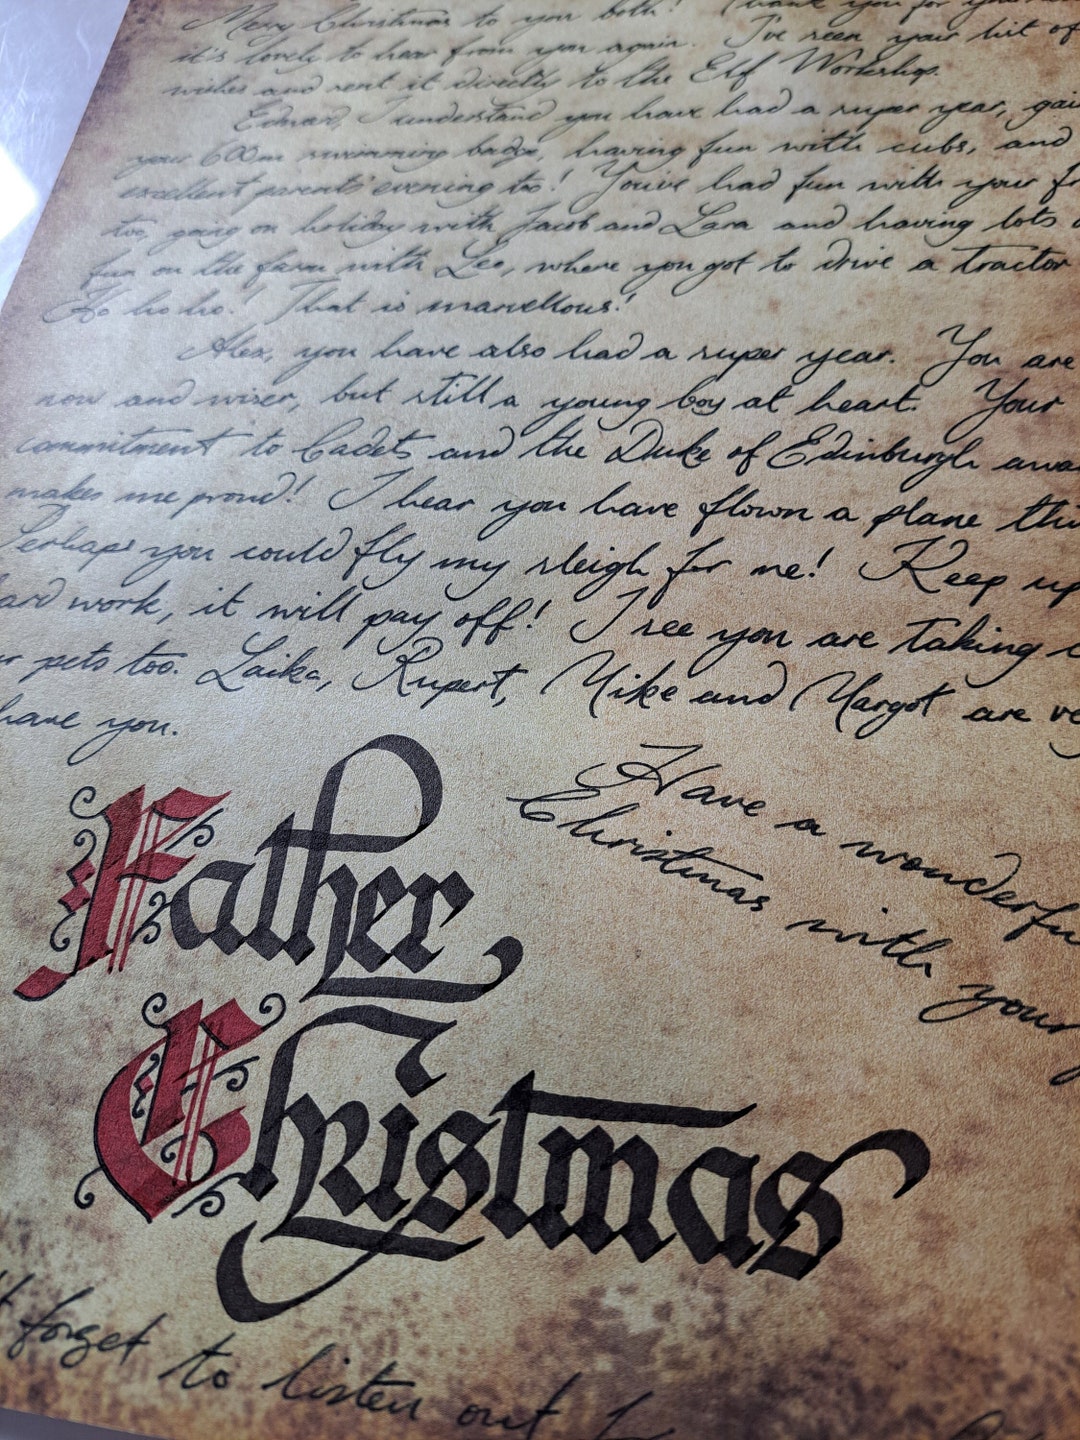 Merry Christmas to you both! Thank you for your
it's lovely to hear from you again. I've seen your list of
wishes and sent it directly to the Elf Workshop.
Edward, I understand you have had a super year, gai
your 600m swimming badge, having fun with cubs, and
excellent parents' evening too! You've had fun with your fr
too, going on holiday with Jacob and Lara and having lots o
fun on the farm with Leo, where you got to drive a tractor
Ho ho ho! That is marvellous!
Alex, you have also had a super year. You are
now and wiser, but still a young boy at heart. Your
commitment to Cadets and the Duke of Edinburgh awa
makes me proud! I hear you have flown a plane thi
Perhaps you could fly my sleigh for me! Keep up
ard work, it will pay off! I see you are taking c
r pets too. Laika, Rupert, Mike and Margot are ve
have you.
Have a wonderfu
Christmas with
your
Father
Christmas
't forget to listen out